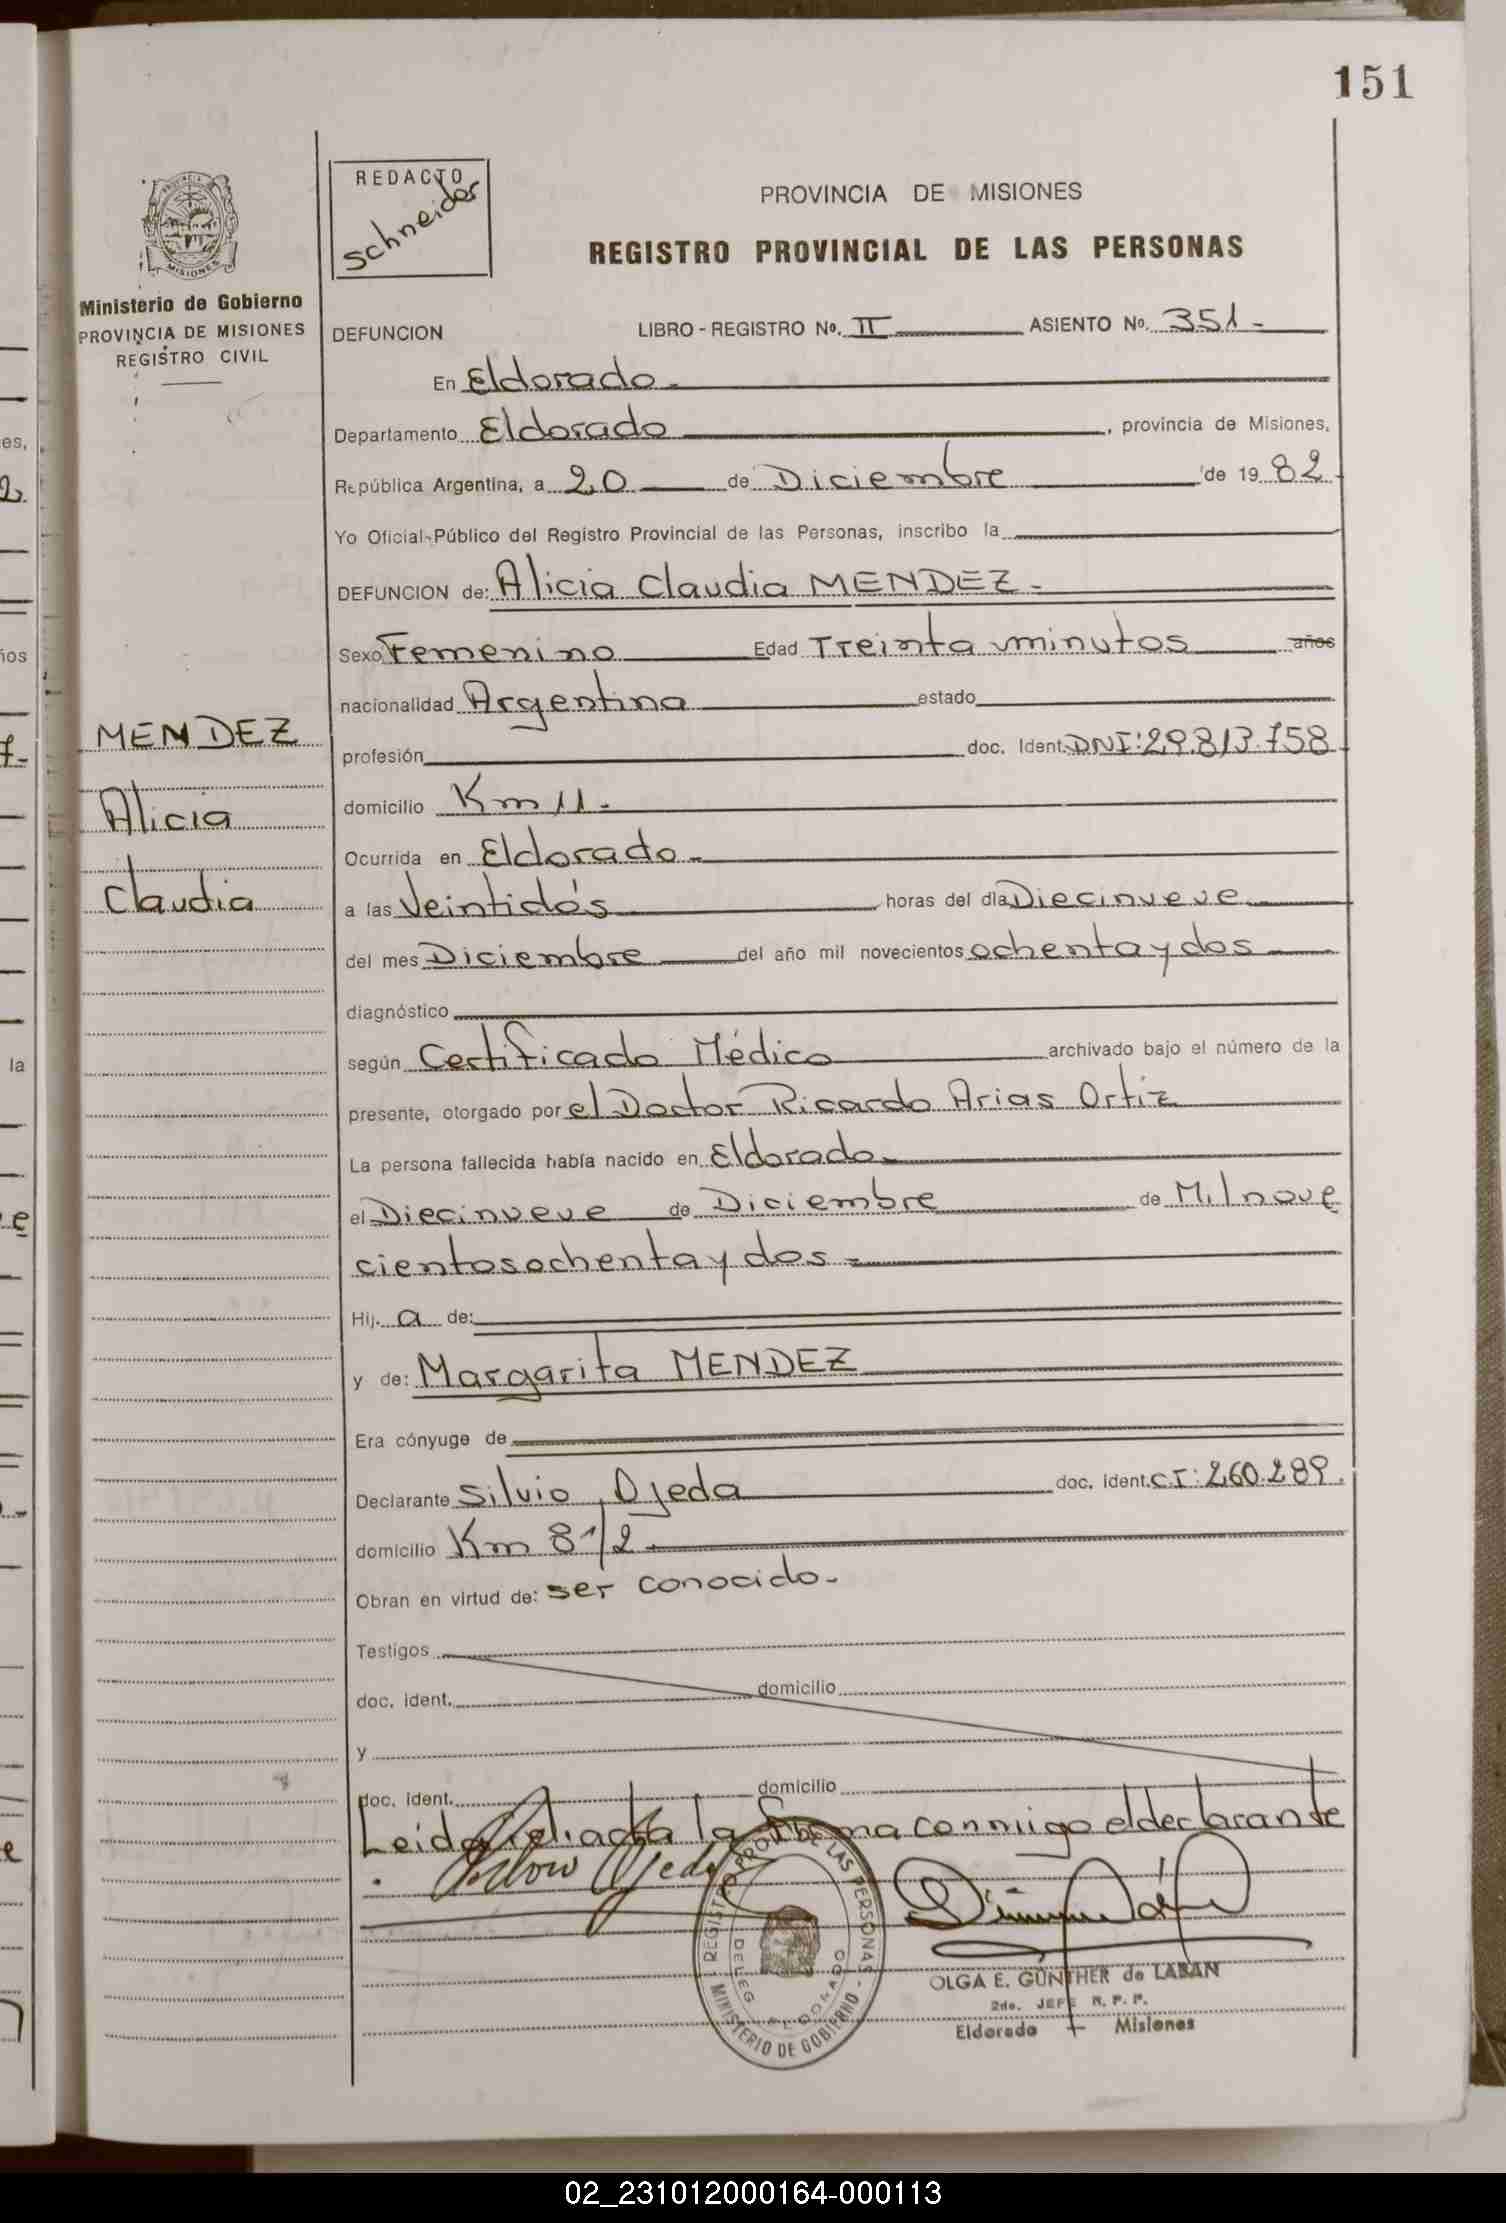 151
REDACTO
Schneider
PROVINCIA DE MISIONES
REGISTRO PROVINCIAL DE LAS PERSONAS
MISIONES
Ministerio de Gobierno
PROVINCIA DE MISIONES
REGISTRO CIVIL
DEFUNCION LIBRO - REGISTRO No. II ASIENTO No. 351-
En Eldorado-
Departamento Eldorado, provincia de Misiones,
República Argentina, a 20 de Diciembre de 1982
Yo Oficial Público del Registro Provincial de las Personas, inscribo la
DEFUNCION de: Alicia Claudia MENDEZ-
Sexo Femenino Edad Treinta minutos años
nacionalidad Argentina estado
MENDEZ
Alicia
Claudia
profesión doc. Ident. DNI: 29.813.758
domicilio Km 11.-
Ocurrida en Eldorado-
a las Veintidós horas del día Diecinueve
del mes Diciembre del año mil novecientos ochenta y dos
diagnóstico
según Certificado Médico archivado bajo el número de la
presente, otorgado por el Doctor Ricardo Arias Ortiz
La persona fallecida había nacido en Eldorado-
el Diecinueve de Diciembre de Mil nove
cientos ochenta y dos-
Hij. a de:
y de: Margarita MENDEZ
Era cónyuge de
Declarante Silvio Ojeda doc. ident. C.I: 260.289.
domicilio Km 8 1/2
Obran en virtud de: ser conocido-
Testigos
doc. ident. domicilio
y
doc. ident. domicilio
Leida el acta la firma conmigo el declarante
REGISTRO PROV. DE LAS PERSONAS
DELEG. ELDORADO
MINISTERIO DE GOBIERNO
OLGA E. GÜNTHER de LABAN
2do. JEFE R. P. P.
Eldorado - Misiones
es,
ños
la
e
02_231012000164-000113